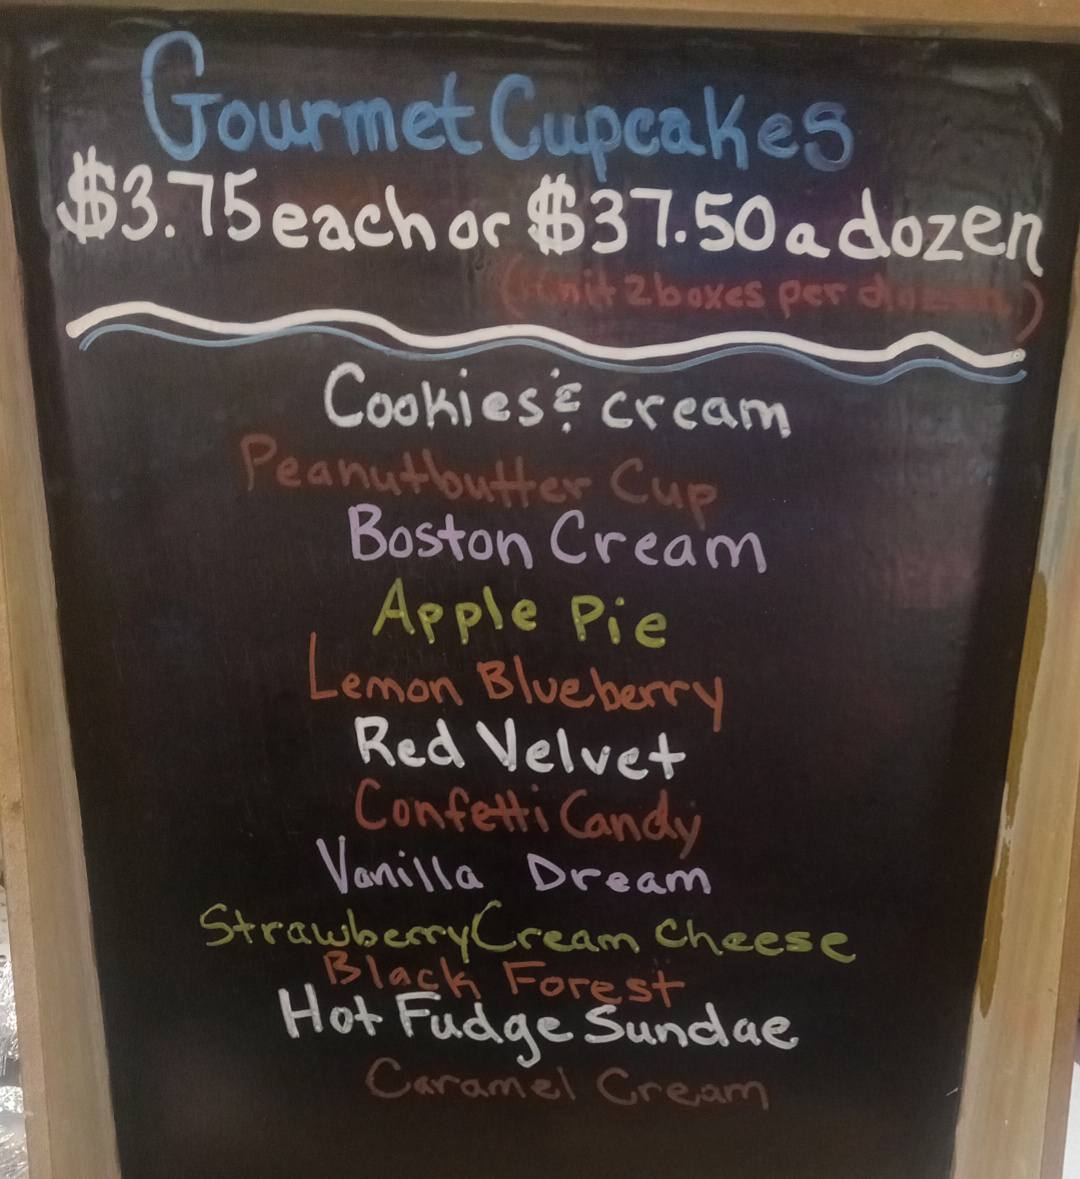 Gourmet Cupcakes
$3.75 each or $37.50 a dozen
(limit 2 boxes per dozen)
Cookies & cream
Peanutbutter Cup
Boston Cream
Apple Pie
Lemon Blueberry
Red Velvet
Confetti Candy
Vanilla Dream
Strawberry Cream Cheese
Black Forest
Hot Fudge Sundae
Caramel Cream